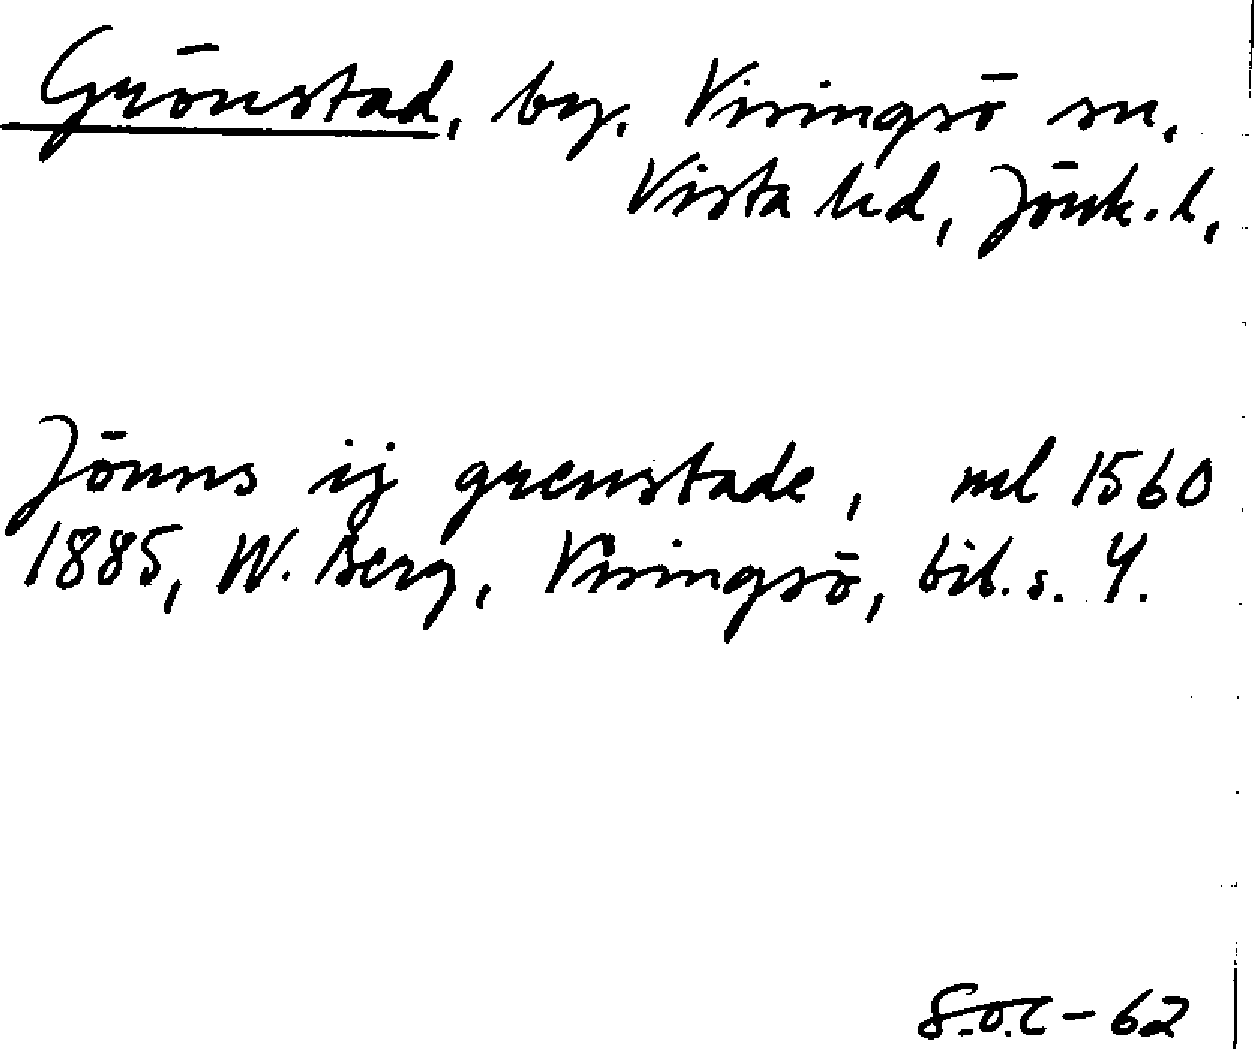 Grönstad, by. Visingsö sn.
Vista hd, Jönk. l.
Jönns ij grenstade, ml 1560
1885, W. Berg, Visingsö, bil. s. 4.
S.O.C-62